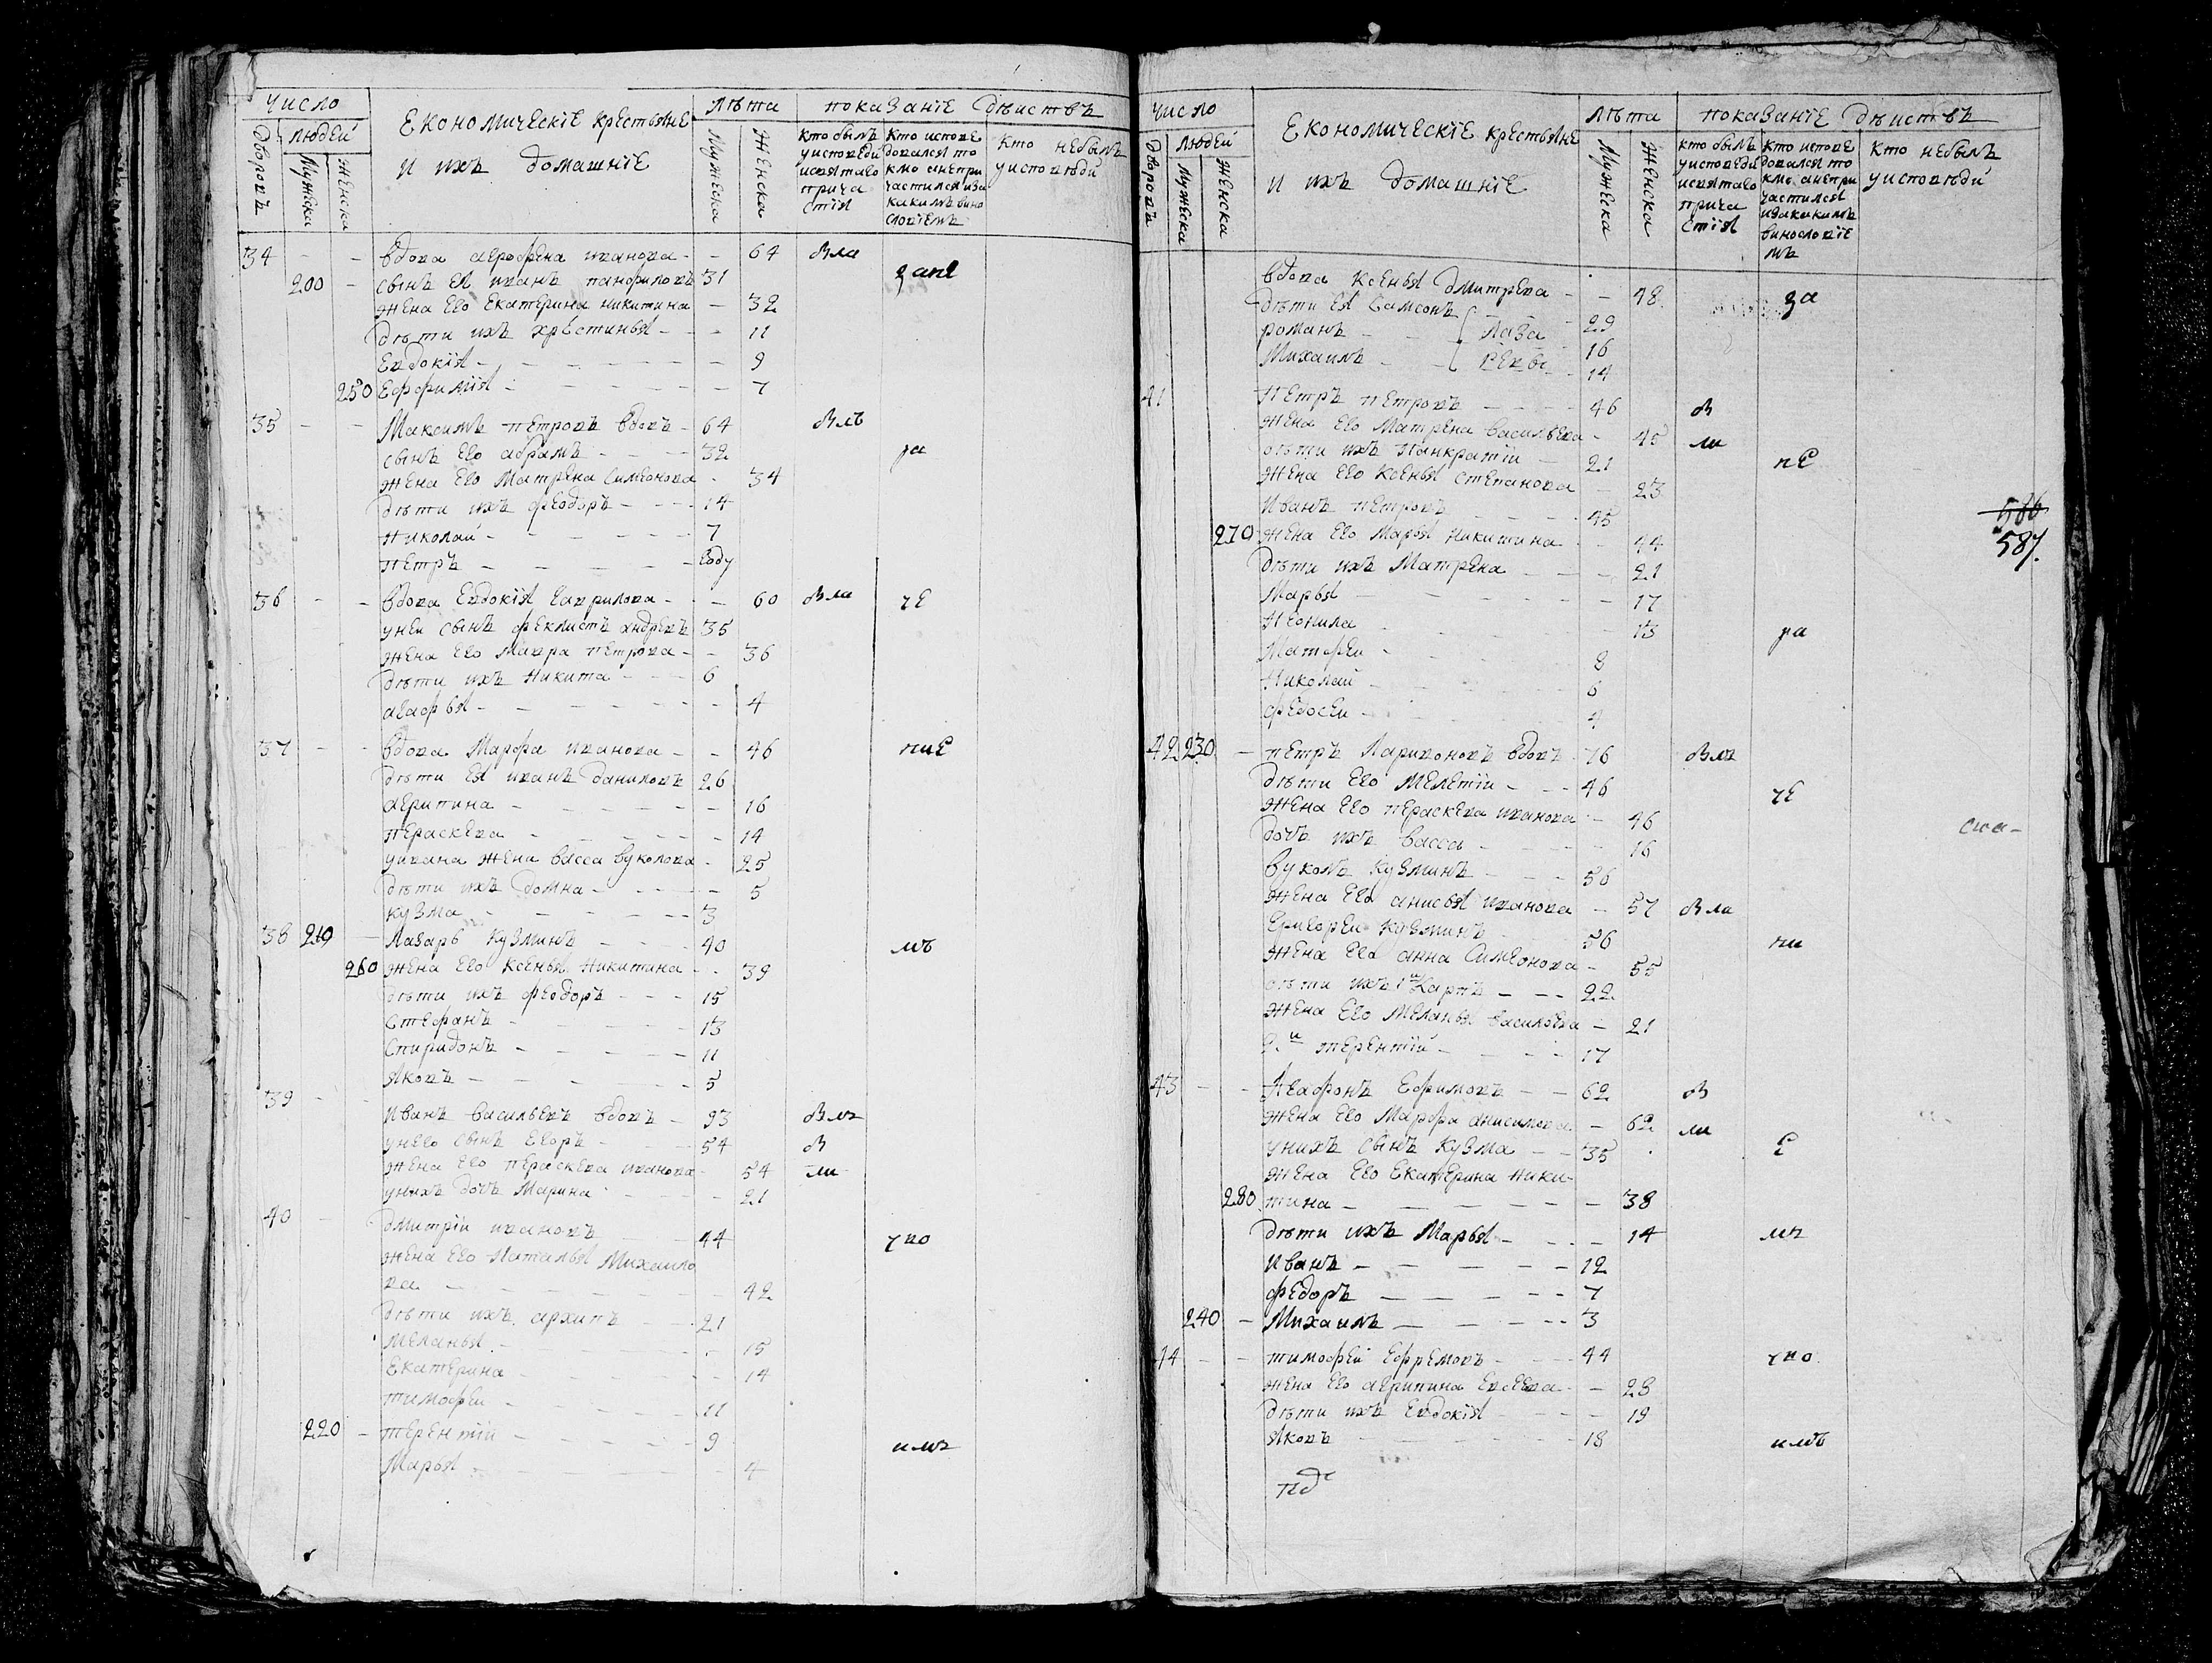 число
Економическіе крестьяне
лѣта
показаніе дѣиствъ
дворовъ
людей
мужеска
женска
и ихъ домашніе
мужеска
женска
кто былъ у исповеди и святаго причастія
кто исповедовался токмо а непричастился и за какимъ винословіемъ
кто небылъ у исповѣди
34 - - вдова агрофена иванова - - 64 вла
200 - сынъ ея иванъ панфиловъ 31 запе
жена его екатерина никитина - 32
дѣти ихъ христинья - - 11
Евдокія - 9
250 Еффимія - 7
35 - - Максимъ петровъ вдовъ - 64 влъ
сынъ его абрамъ - 32 ра
жена его Матрена Симеонова - 34
дѣти ихъ феодоръ - 14
Николай - 7
петръ - году
36 - - вдова Евдокія гаврилова - - 60 вла че
у неи сынъ феклистъ андревъ 35
жена его Мавра петрова - - 36
дѣти ихъ Никита - 6
агафья - 4
37 - - вдова Марфа иванова - - 46 ние
дѣти ея иванъ даниловъ 26
агрипина - 16
пераскева - 14
у ивана жена васса вуколова - 25
дѣти ихъ домна - 5
кузма - 3
38 210 - Лазарь Кузминъ - 40 мъ
260 жена его Ксенья Никитина - 39
дѣти ихъ феодоръ - 15
Стефанъ - 13
Спиридонъ - 11
яковъ - 5
39 - - Иванъ васильевъ вдовъ - 93 влъ
у него сынъ Егоръ - 54 в
жена его пераскева иванова - 54 ли
у нихъ дочь Марина - 21
40 - дмитріи ивановъ - 44 упо
жена его Наталья Михаило
ва - 42
дѣти ихъ архипъ - 21
Меланья - 15
Екатерина - 14
тимофеи - 11
220 - терентіи - 9 имъ
Марья - 4
число
Економическіе крестьяне
лѣта
показаніе дѣиствъ
дворовъ
людей
мужеска
женска
и ихъ домашніе
мужеска
женска
кто былъ у исповеди и святаго причастія
кто исповедовался токмо а непричастился и за какимъ винословіемъ
кто небылъ у исповѣди
вдова Ксенья дмитрева - - 48 за
дѣти ея Самсонъ - 29
романъ - лаза 16
Михаилъ - ревы - 14
41 Петръ петровъ - 46 в
жена его Матрена васильева - 45 ли
дѣти ихъ Панкратіи - 21 пе
жена его Ксенья Степанова - 23
Иванъ петровъ - 45
586
270 жена его Марья никитина - 44
587.
дѣти ихъ Матрена - 21
Марья - 17
Неонила - 13 ра
Матфеи - 8
Николаи - 6
федосеи - 4
42 230 - петръ Ларивоновъ вдовъ - 76 влъ
дѣти его Мелетіи - 46 че
жена его пераскева иванова - 46
дочь ихъ васса - 16
вуколъ Кузминъ - 56
жена его анисья иванова - 57 вла
Григореи Кузминъ - 56 ни
жена его анна Симеонова - 55
дѣти ихъ 1й Карпъ - 22
жена его Меланья васильева - 21
2.й терентіи - 17
43 - - Агафонъ Ефимовъ - 62 в
жена его Марфа анисимова - 62 ли
у нихъ сынъ Кузма - 35 е
жена его Екатерина Ники-
280 тина - 38
дѣти ихъ Марья - 14 мъ
Иванъ - 12
федоръ - 7
240 - Михаилъ - 3
44 - - тимофеи Ефремовъ - 44 упо
жена его агрипина Евсеева - 28
дѣти ихъ Евдокія - 19
яковъ - 18 имъ